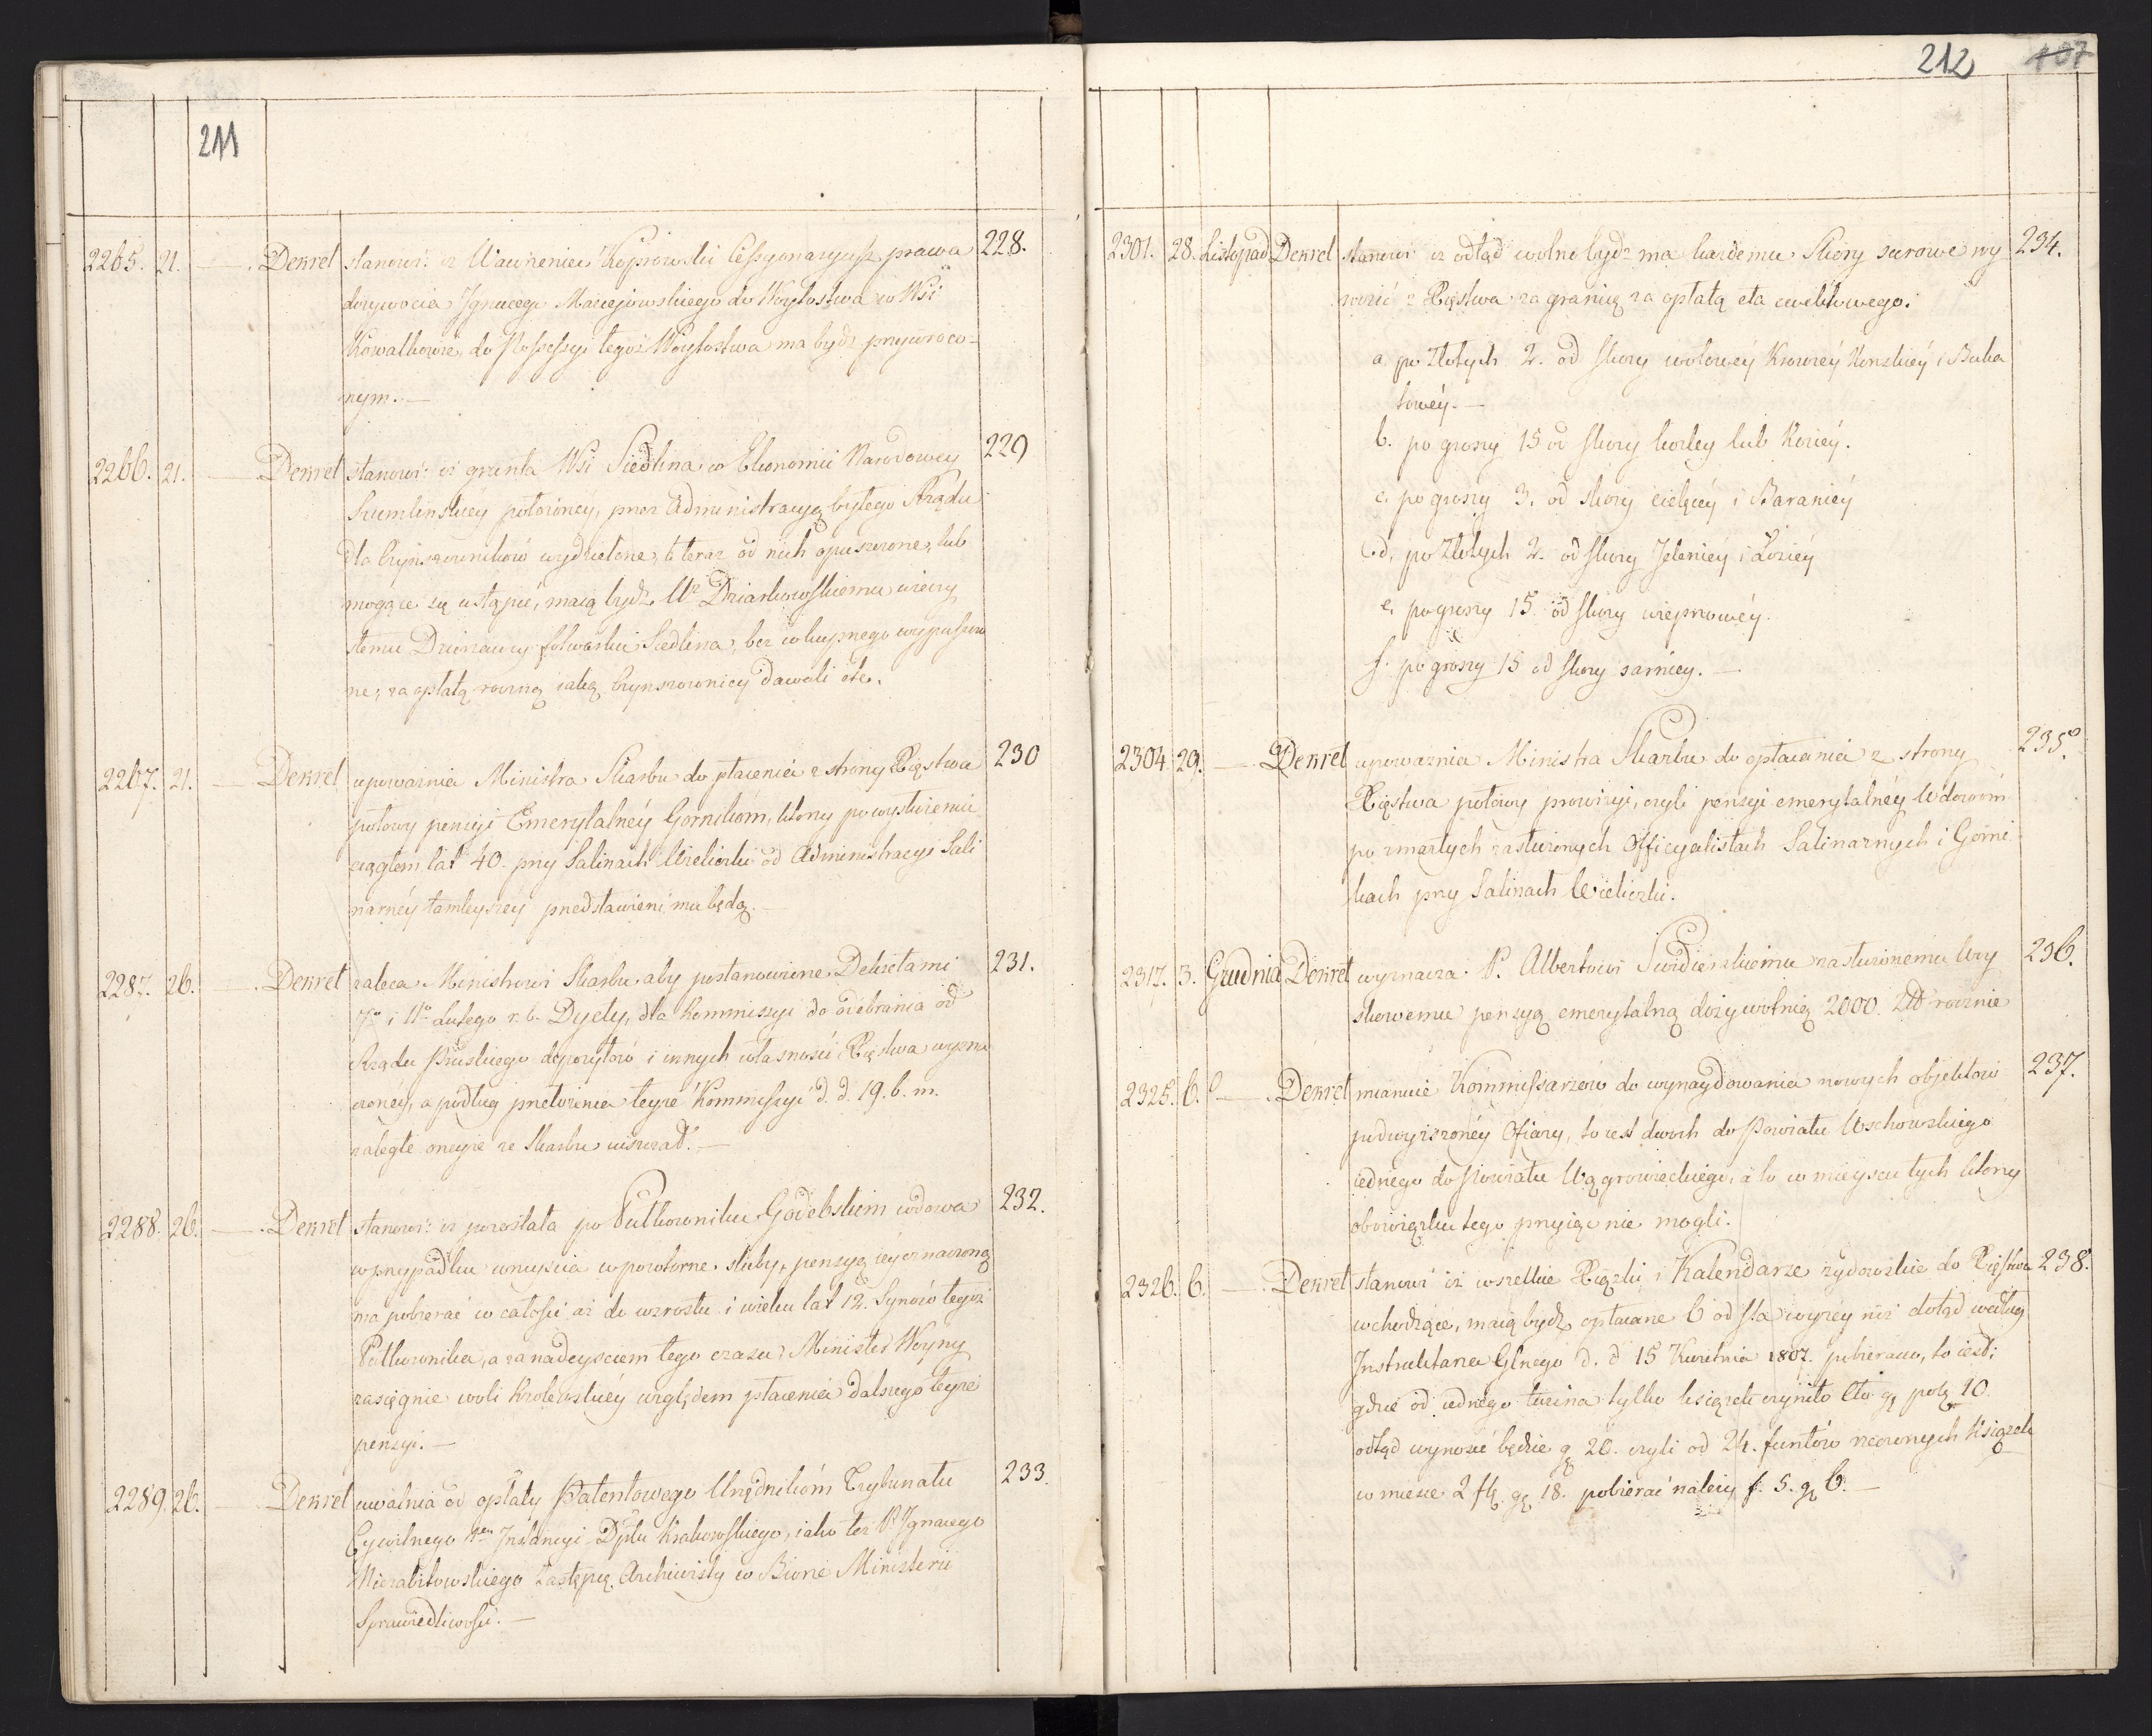 211
2265. 21. — . Dekret stanowi: iż Wawrzeniec Koprowski Cessyonaryusz prawa 228.
dożywocia Ignacego Maciejowskiego do Woytostwa w Wsi
Kowalkowie, do Possessyi tegoż Woytostwa ma bydź przywróco-
nym. —
2266. 21. — Dekret stanowi: iż grunta Wsi Siedlina w Ekonomii Narodowey 229
Szumlinskiéy położonéy, przez Administracyą byłego Rządu
dla Czynszowników wydzielone, te teraz od nich opuszczone, lub
mogące się ustąpić, maią bydź Ur Dziarkowskiemu wieczy
stemu Dzierżawcy folwarku Siedlina, bez wkupnego wypuszczo
ne, za opłatą roczną iaką Czynszownicy dawali etc.
2267. 21. — Dekret upoważnia Ministra Skarbu do płacenia z strony Xięstwa 230
połowy pensyi Emerytalnéy Gornikóm, którzy po wysłużeniu
ciągłem lat 40. przy Salinach Wieliczki od Administracyi Sali
narnéy tamteyszéy przedstawieni mu będą. —
2287. 26. — . Dekret zaleca Ministrowi Skarbu, aby postanowione Dekretami 231.
7o i 11o Lutego r. b. Dyety, dla Kommissyi do odebrania od
Rządu Pruskiego depozytów i innych własności Xięstwa wyzna
czonéy, a podług przełożenia teyże Kommissyi d. d. 19. b. m.
zaległe oneyże ze Skarbu uiszczał. —
2288. 26. — . Dekret stanowi: iż pozostała po Pułkowniku Godebskim wdowa 232.
w przypadku weyścia w powtórne śluby, pensyą iéy oznaczoną
ma pobierać w całości aż do wzrostu i wieku lat 12. Synów tegoż
Pułkownika, a za nadeyściem tego czasu, Minister Woyny
zasięgnie woli Krolewskiéy względem płacenia dalszego teyże
pensyi. —
2289. 26. — . Dekret uwalnia od opłaty Patentowego Urzędnikóm Trybunału 233.
Cywilnego 1ey Instancyi Dpttu Krakowskiego, iako też P. Ignacego
Niezabitowskiego Zastępcę Archiwisty w Biorze Ministerii
Sprawiedliwości. —
212 107
2301. 28. Listopad Dekret stanowi iż odtąd wolno bydź ma każdemu Skóry surowe wy 234.
wozić z Xięstwa za granicę za opłatą cła exwektowego.
a, po Złotych 2. od skóry wołowéy Krowiéy Konskiéy i Buha
iowéy. —
b. po groszy 15 od skóry kozley lub Koziéy.
c. po groszy 3. od skóry cielęcéy i Baraniéy
d, po Złotych 2. od skóry Jeleniéy i Łosiéy
e. po groszy 15 od skóry wieprzowéy.
f. po groszy 15 od skóry sarniey. —
2304. 29. — . Dekret upoważnia Ministra Skarbu do opłacania z strony 235.
Xięstwa połowy prowizyi, czyli pensyi emerytalnéy Wdowóm
po zmarłych zasłużonych Officyalistach Salinarnych i Górni
kach przy Salinach Wieliczki.
2317. 3. Grudnia Dekret wyznacza P. Albertowi Swidierskiemu zasłużonemu Woy 236.
skowemu pensyą emerytalną dożywotnią 2000. Złł rocznie
2325. 6. — . Dekret mianuie Kommissarzow do wynaydowania nowych objektow 237.
podwyższonéy Ofiary, to iest dwóch do Powiatu Wschowskiego
iednego do Powiatu Wągrowieckiego, a to w mieyscu tych którzy
obowiązku tego przyiąć nie mogli.
2326. 6. — . Dekret stanowi iż wszelkie Xiążki i Kalendarze żydowskie do Xięstwa 238.
wchodzące, maią bydź opłacane 6 od sta wyzéy niż dotąd według
Instruktarza Glnego d. d 15 Kwietnia 1807. pobierano, to iest:
gdzie od iednego tuzina tylko książek czyniło Cło gr pols 10.
odtąd wynosić będzie gr 20. czyli od 24. funtów rzeczonych książek
w mieisce 2 fl. gr 18. pobierać należy f. 5. gr 6. —